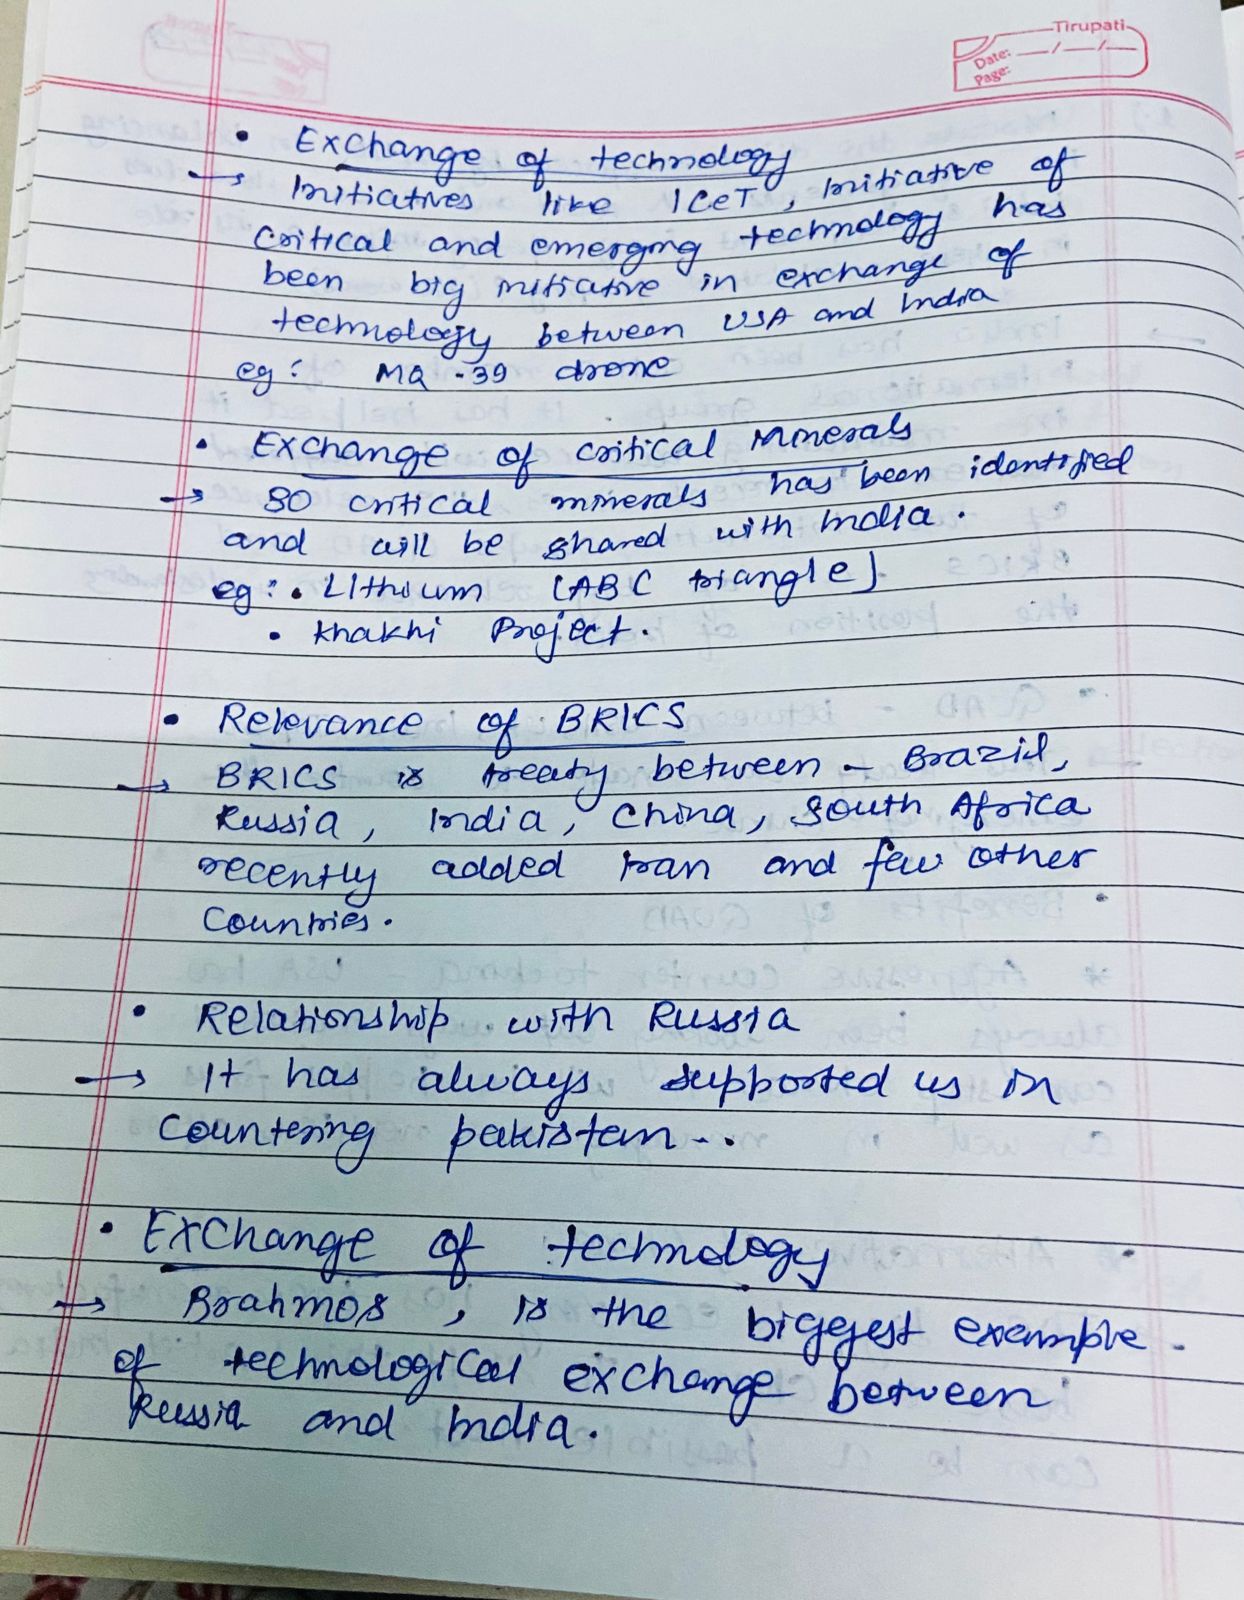 Tirupati
Date: __/__/__
Page:
• Exchange of technology
→ Initiatives like ICeT, Initiative of
critical and emerging technology has
been big initiative in exchange of
technology between USA and India
eg: MQ-39 drone
• Exchange of critical Minerals
→ 30 critical minerals has been identified
and will be shared with India.
eg: • Lithium [ABC triangle]
• Khakhi Project.
• Relevance of BRICS
→ BRICS is treaty between - Brazil,
Russia, India, China, South Africa
recently added Iran and few other
Countries.
• Relationship with Russia
→ It has always supported us in
countering pakistan...
• Exchange of technology
→ Brahmos, is the biggest example
of technological exchange between
Russia and India.